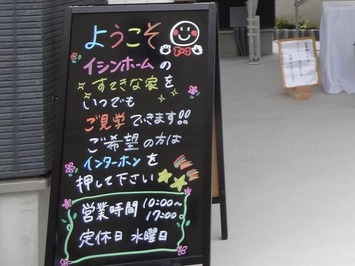 ようこそ
イシンホームの
すてきな家を
いつでも
ご見学できます!!
ご希望の方は
インターホンを
押して下さい
営業時間 10:00~
17:00
定休日 水曜日